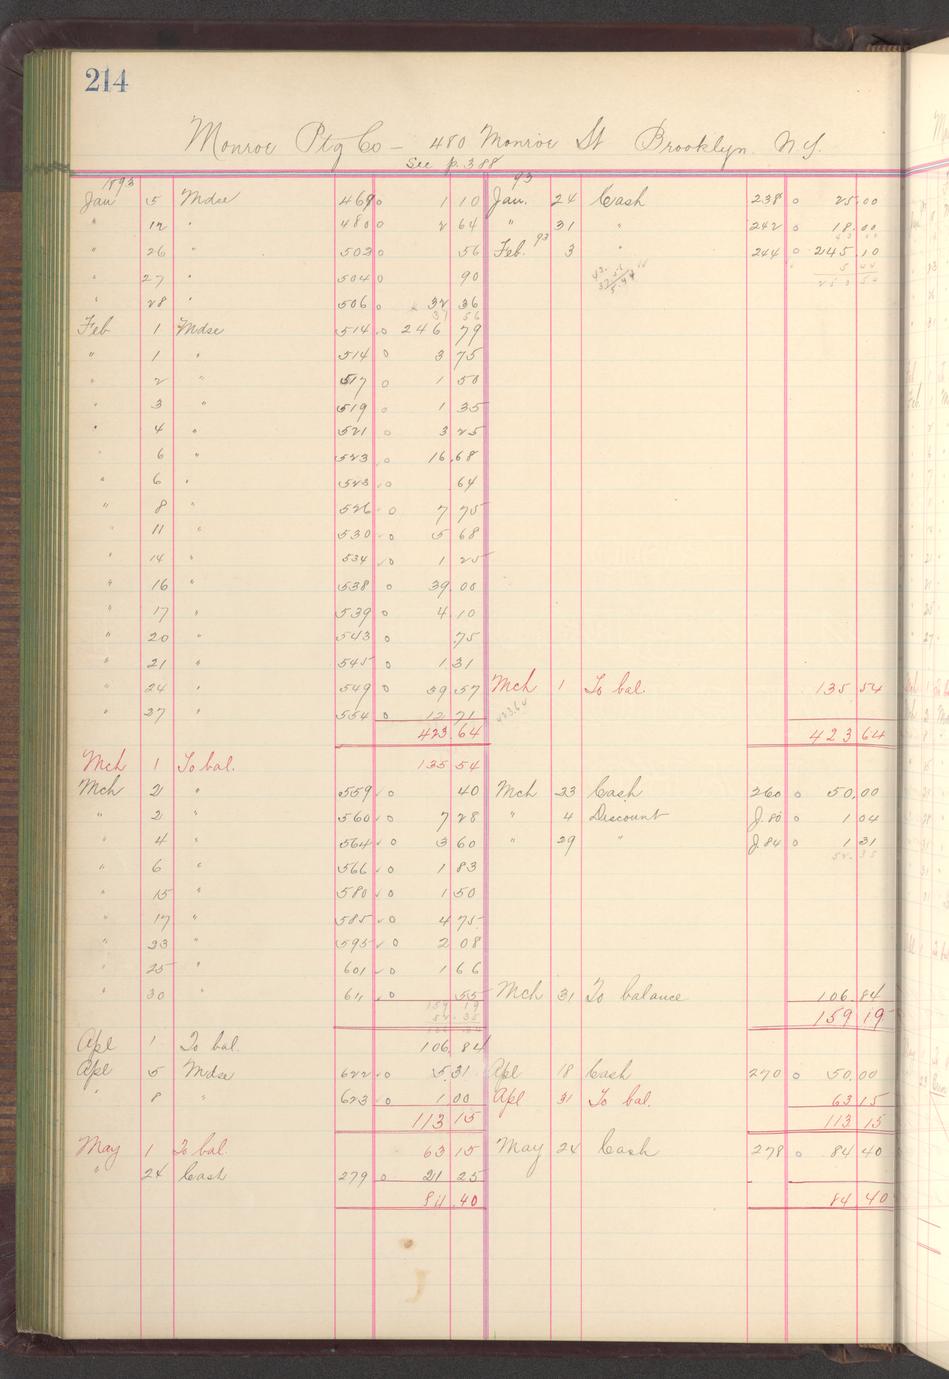 214
Monroe Ptg Co - 480 Monroe St Brooklyn N.Y.
See p. 388
1893 93
Jan 5 Mdse 469 0 1 10 Jan. 24 Cash 238 0 25.00
" 12 " 480 0 2 64 " 31 " 242 0 18.00
" 26 " 503 0 56 Feb. 93 3 " 244 0 245.10
" 27 " 504 0 90
" 28 " 506 32 36
37 56
Feb 1 Mdse 514 0 246 79
" 1 " 514 0 3 75
" 2 " 517 0 1 50
" 3 " 519 0 1 35
" 4 " 521 0 3 25
" 6 " 523 0 16.68
" 6 " 523 0 64
" 8 " 526 0 7 75
" 11 " 530 0 5 68
" 14 " 534 0 1 25
" 16 " 538 0 39.00
" 17 " 539 0 4.10
" 20 " 543 0 .75
" 21 " 545 0 1 31
" 24 " 549 0 39.57 Mch 1 To bal. 135 54
" 27 " 554 0 12 71 423.64
423.64 423 64
Mch 1 To bal. 135 54
Mch 2 " 559 0 40 Mch 23 Cash 260 0 50.00
" 2 " 560 0 7 28 " 4 Discount J.80 0 1 04
" 4 " 564 0 3 60 " 29 " J.84 0 1 31
" 6 " 566 0 1 83 52.35
" 15 " 580 0 1 50
" 17 " 585 0 4 75
" 23 " 595 0 2 08
" 25 " 601 0 1 66
" 30 " 611 0 55 Mch 31 To balance 106.84
159 19 159 19
52.35
Apl 1 To bal. 106.84
Apl 5 Mdse 622 0 5.31 Apl 18 Cash 270 0 50.00
" 8 " 623 0 1.00 Apl 31 To bal. 63 15
113 15 113 15
May 1 To bal. 63 15 May 24 Cash 278 0 84 40
" 24 Cash 279 0 21 25
84.40 84 40